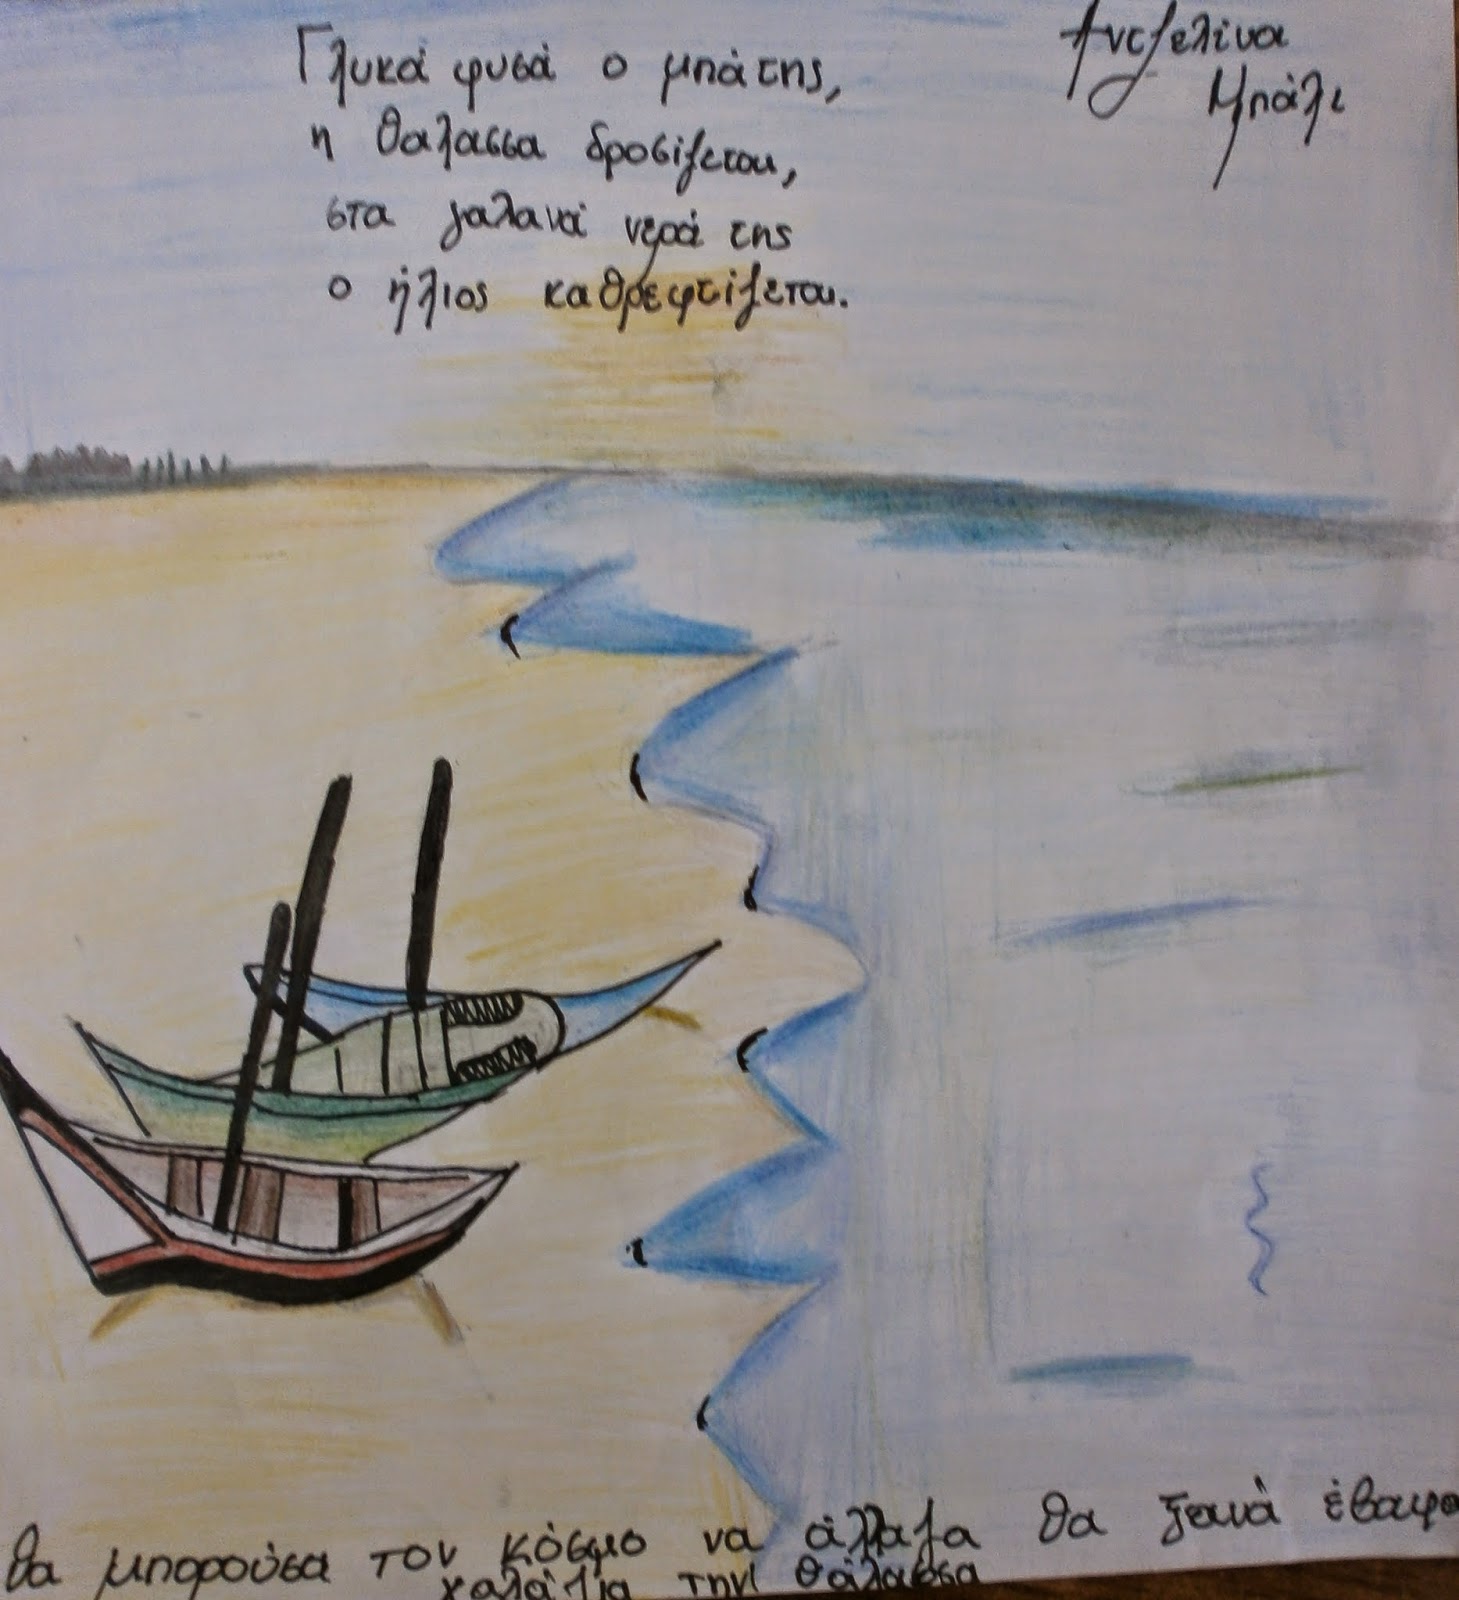 Γλυκά φυσά ο μπάτης,
η θαλασσα δροσίζεται,
στα γαλανά νερά της
ο ήλιος καθρεφτίζεται.
Αντζελίνα
Μπάλι
θα μπορούσα τον κόσμο να άλλαζα θα ξανά έβαφα
γαλάζια την θάλασσα